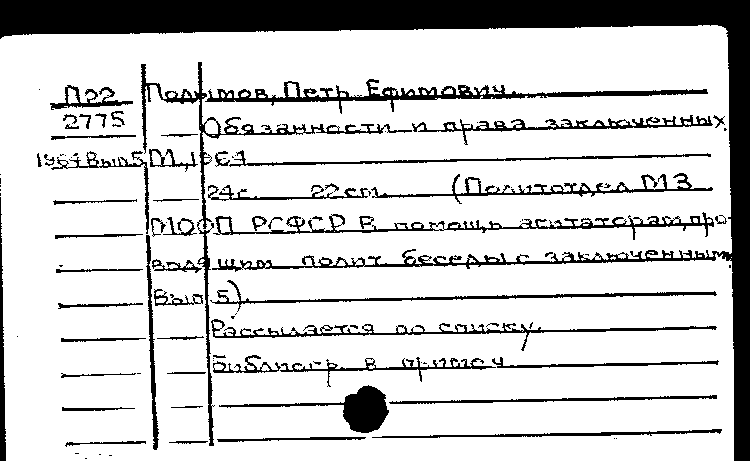 П22 Подымов, Петр Ефимович.
2775 Обязанности и права заключенных
1964 Вып 5, М., 1964
24 с. 22 см. (Политотдел МЗ
МООП РСФСР В помощь агитаторам, про-
водящим полит беседы с заключенными
Вып 5).
Рассылается по списку.
Библиогр. в примеч